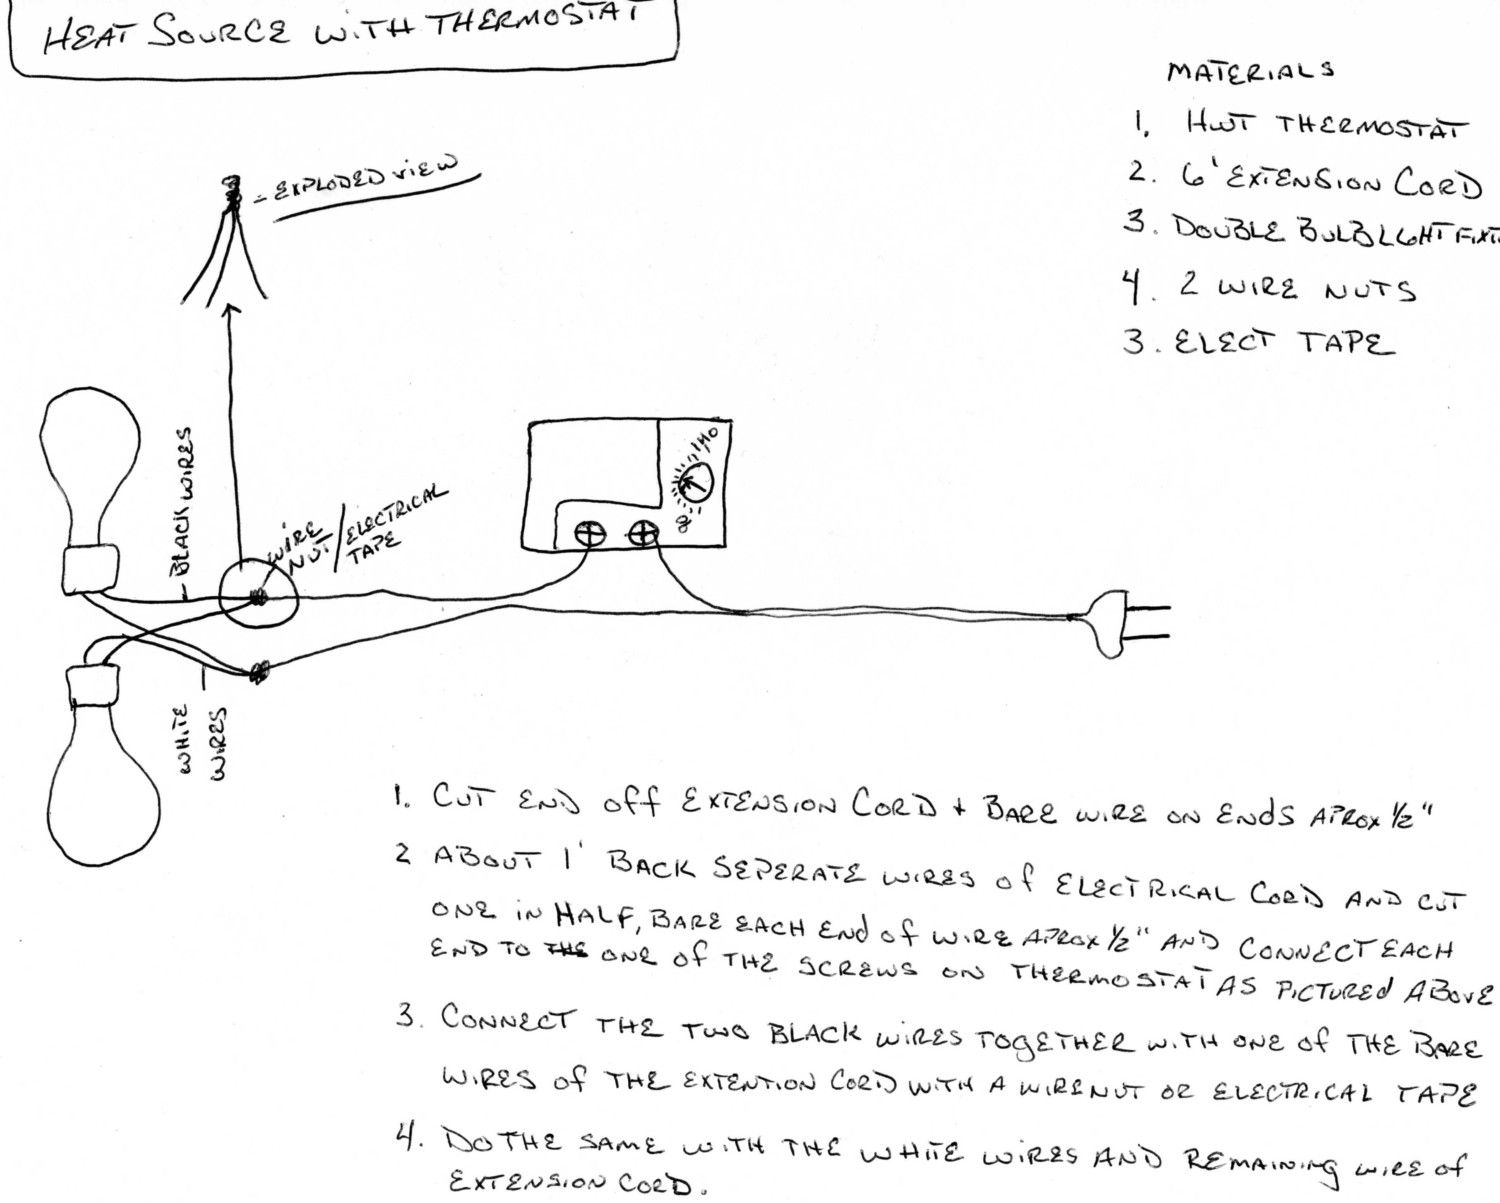 HEAT SOURCE WITH THERMOSTAT
MATERIALS
1. HWT THERMOSTAT
2. 6' EXTENSION CORD
3. DOUBLE BULB LGHT FIXT
4. 2 WIRE NUTS
3. ELECT TAPE
= EXPLODED VIEW
BLACK WIRES
WIRE NUT / ELECTRICAL TAPE
140
WHITE
WIRES
1. CUT END OFF EXTENSION CORD + BARE WIRE ON ENDS APROX 1/2"
2 ABOUT 1' BACK SEPERATE WIRES OF ELECTRICAL CORD AND CUT
ONE IN HALF, BARE EACH END OF WIRE APROX 1/2" AND CONNECT EACH
END TO THE ONE OF THE SCREWS ON THERMOSTAT AS PICTURED ABOVE
3. CONNECT THE TWO BLACK WIRES TOGETHER WITH ONE OF THE BARE
WIRES OF THE EXTENTION CORD WITH A WIRENUT OR ELECTRICAL TAPE
4. DO THE SAME WITH THE WHITE WIRES AND REMAINING WIRE OF
EXTENSION CORD.